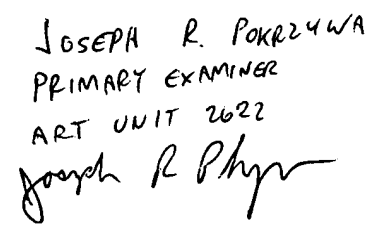 JOSEPH R. POKRZYWA
PRIMARY EXAMINER
ART UNIT 2622
Joseph R P